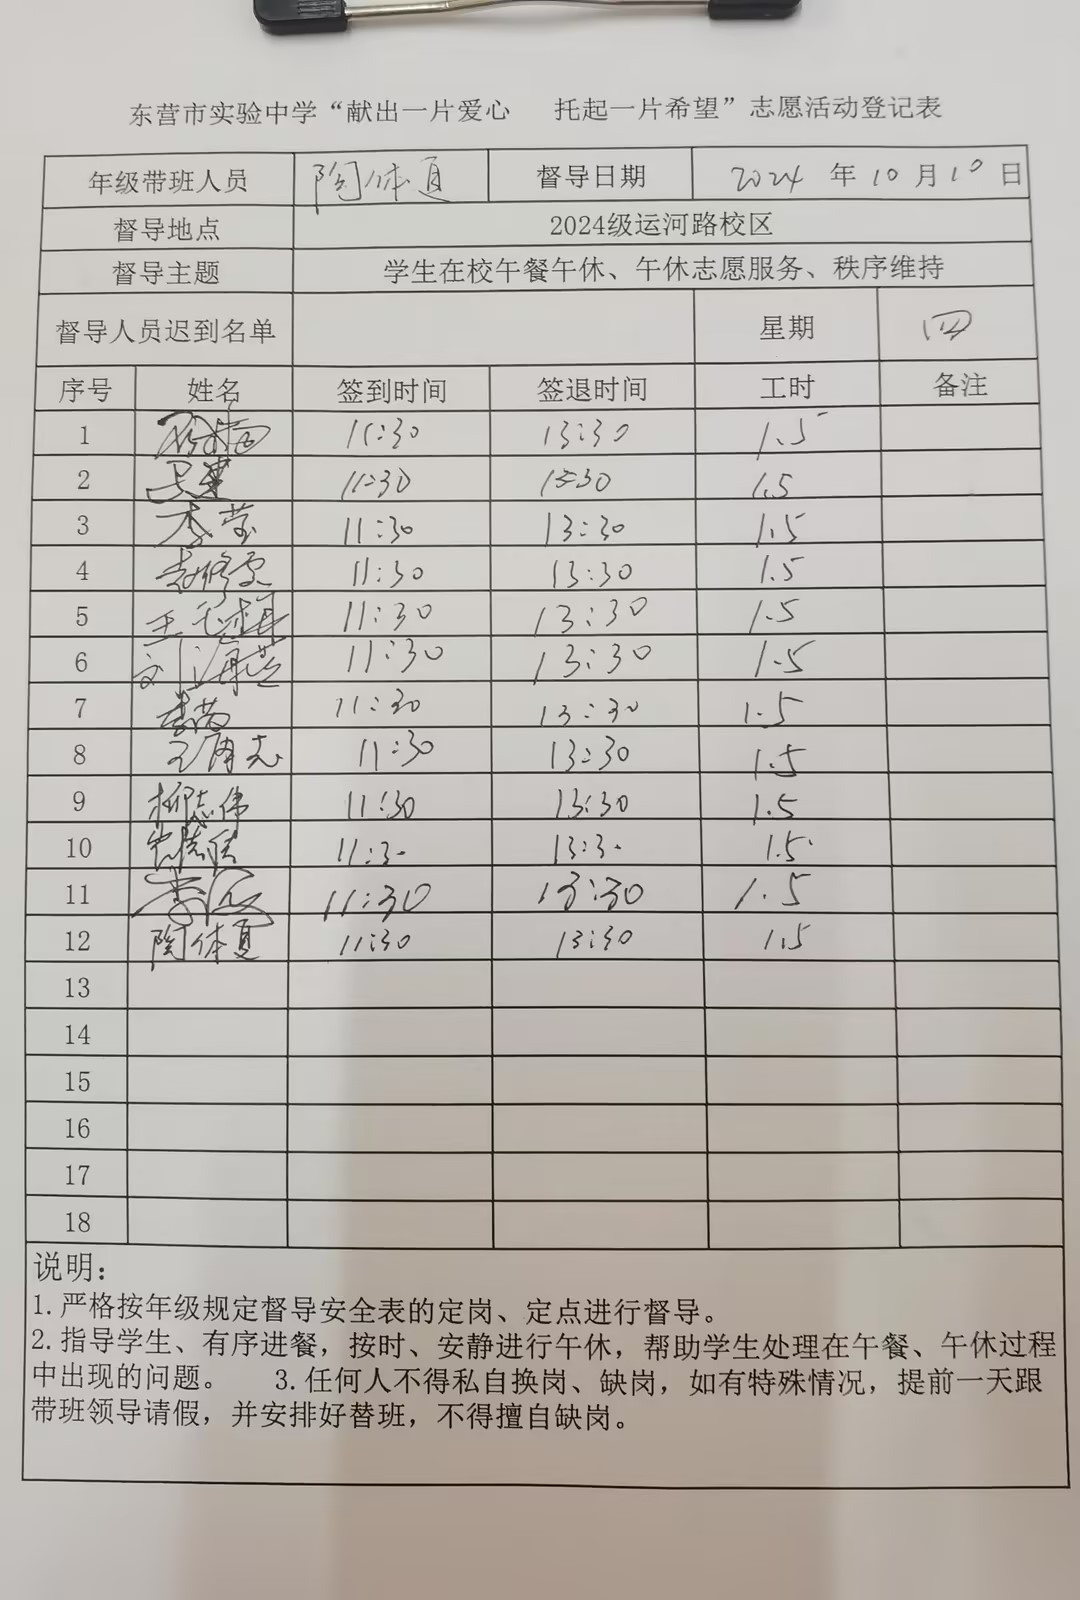 东营市实验中学“献出一片爱心　托起一片希望”志愿活动登记表
年级带班人员 陶体夏 督导日期 2024 年 10 月 10 日
督导地点 2024级运河路校区
督导主题 学生在校午餐午休、午休志愿服务、秩序维持
督导人员迟到名单 星期 四
序号 姓名 签到时间 签退时间 工时 备注
1 11:30 13:30 1.5
2 11:30 13:30 1.5
3 李莹 11:30 13:30 1.5
4 11:30 13:30 1.5
5 11:30 13:30 1.5
6 刘海燕 11:30 13:30 1.5
7 11:30 13:30 1.5
8 11:30 13:30 1.5
9 柳志伟 11:30 13:30 1.5
10 11:30 13:30 1.5
11 11:30 13:30 1.5
12 陶体夏 11:30 13:30 1.5
13
14
15
16
17
18
说明：
1.严格按年级规定督导安全表的定岗、定点进行督导。
2.指导学生、有序进餐，按时、安静进行午休，帮助学生处理在午餐、午休过程
中出现的问题。　3.任何人不得私自换岗、缺岗，如有特殊情况，提前一天跟
带班领导请假，并安排好替班，不得擅自缺岗。